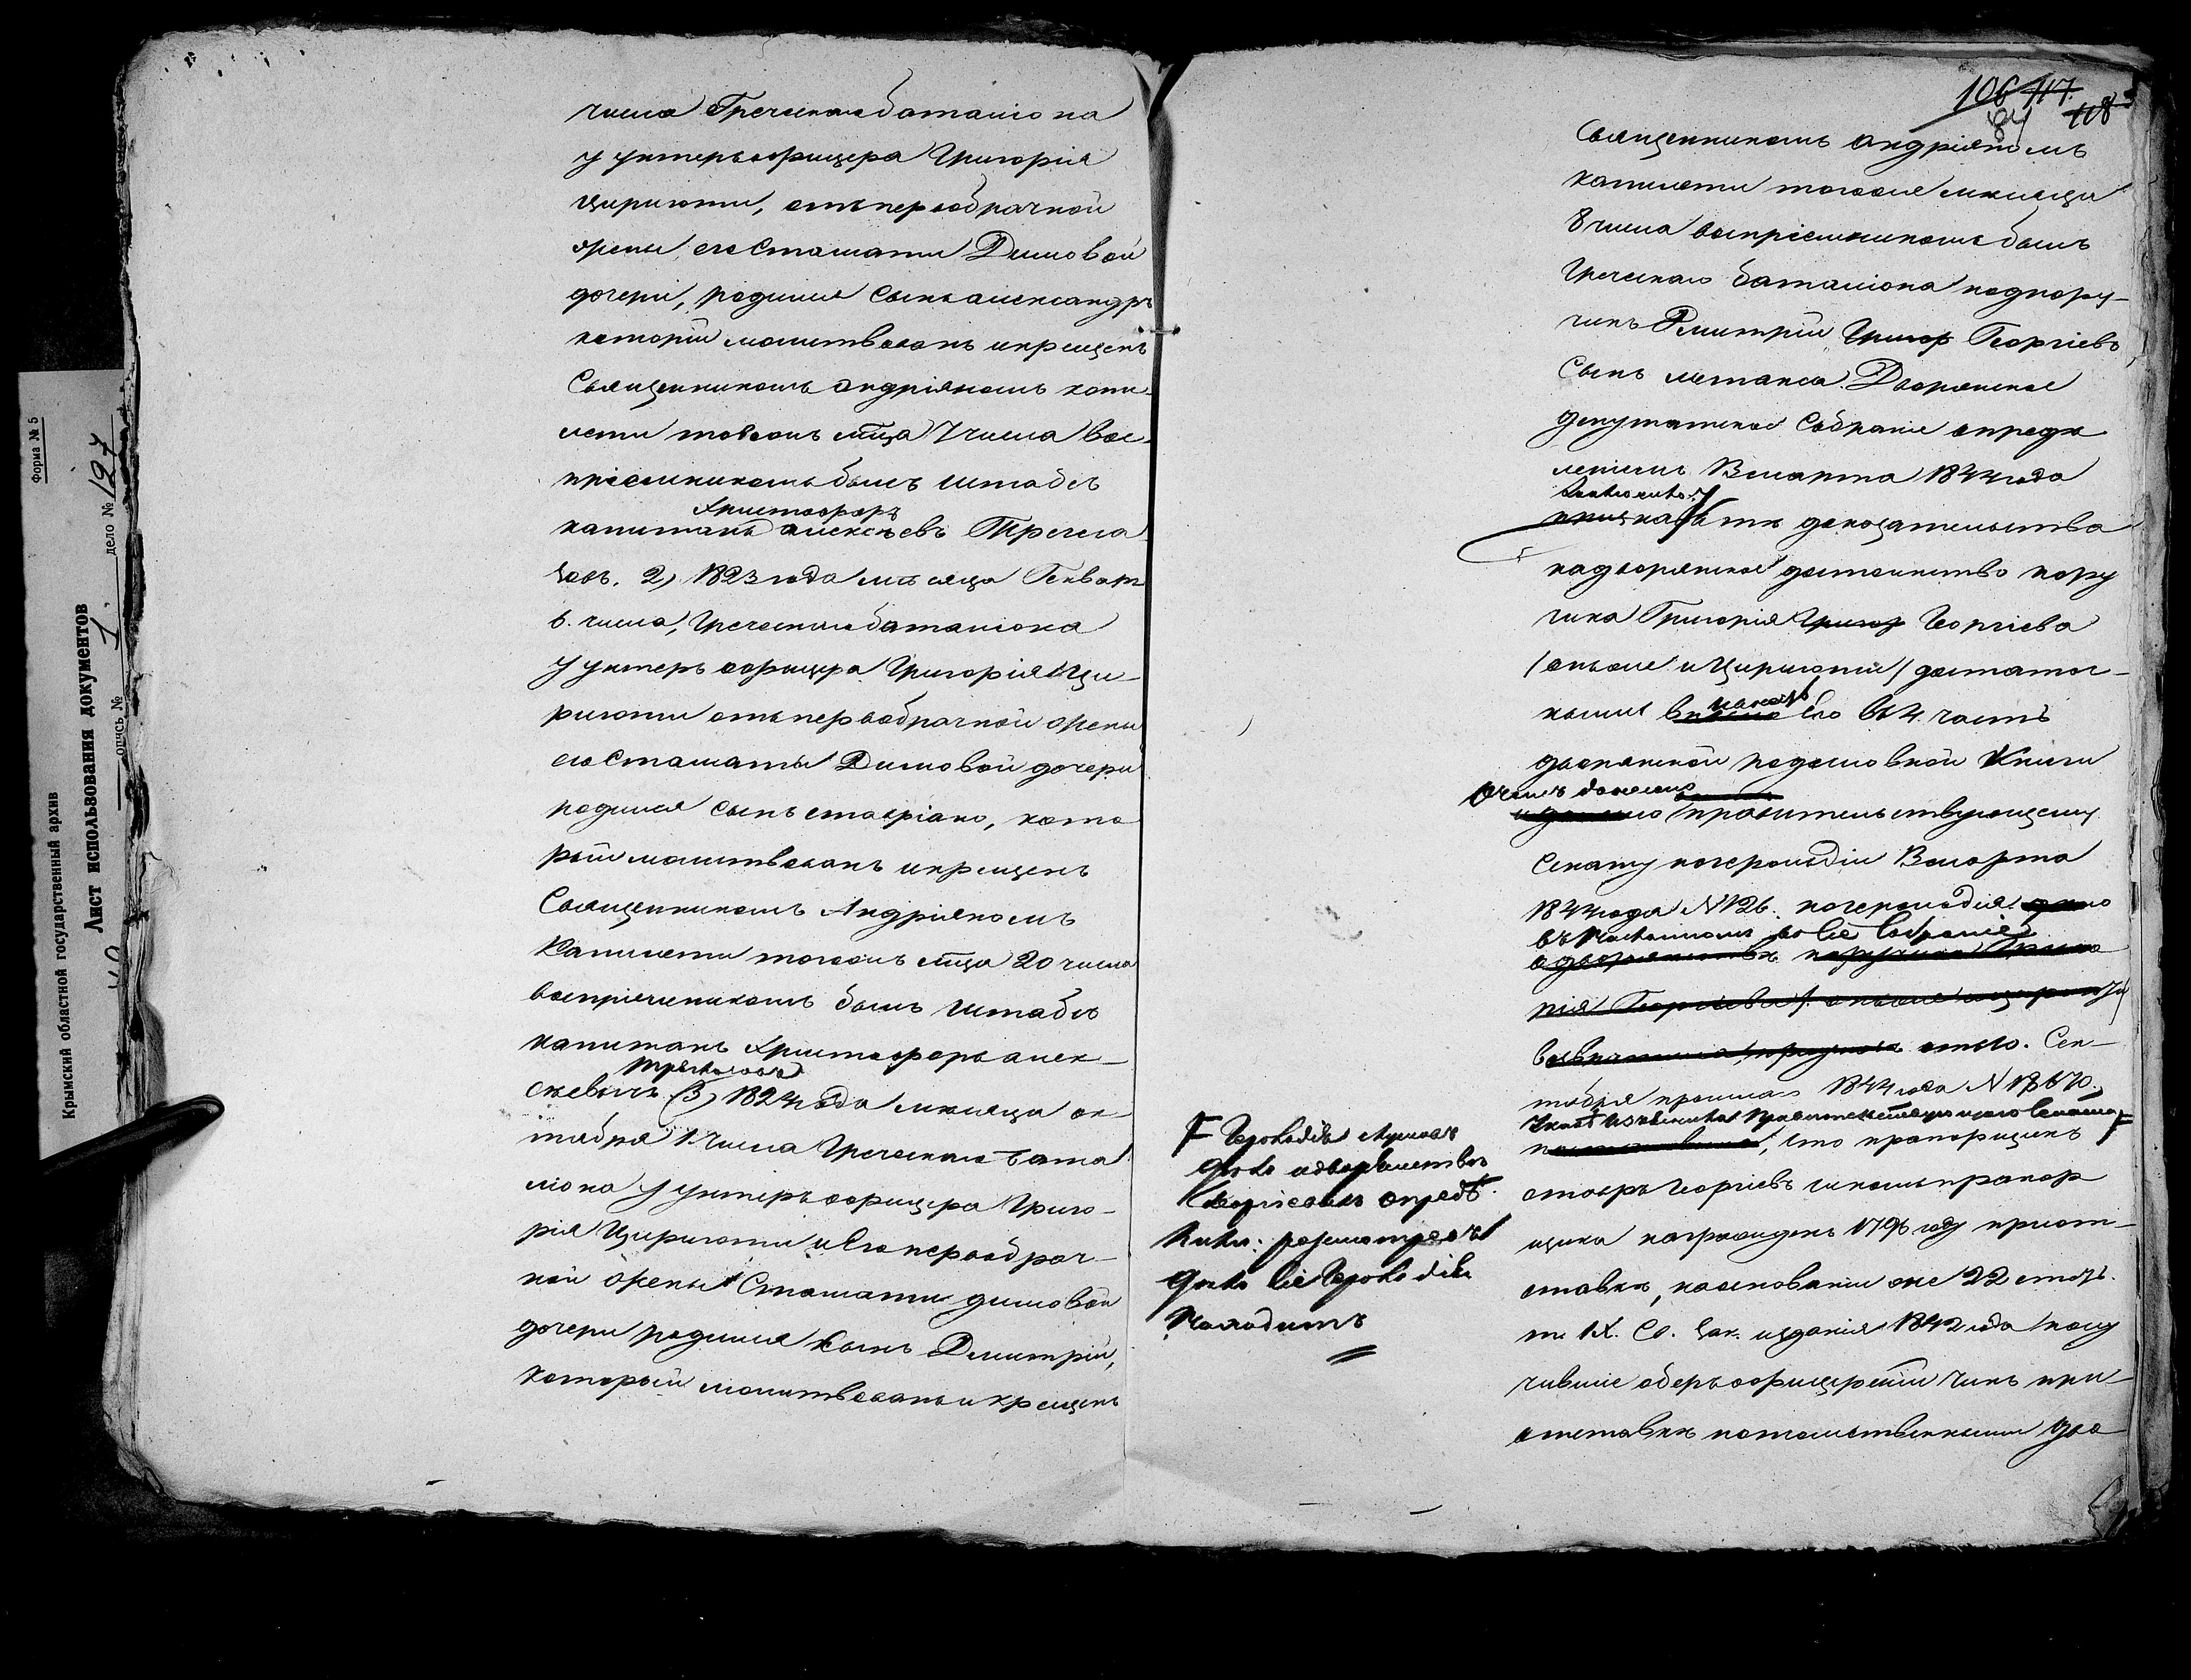 Форма № 5
Крымский областной государственный архив
Лист использования документов
опись № 1. дело № 127
числа Греческаго баталіона
у унтеръ офицера Григорія
Цириготи, отъ первобрачной
жены его Стаматы Димовой
дочери, родился сынъ александръ
который молитвованъ и крещенъ
Священникомъ андріяномъ капи-
лети тогожъ мца 7 числа вос-
пріемникомъ былъ штабсъ
Христофоръ
капитанъ алексѣевъ
2) 1823 года мѣсяца
6. числа, Греческаго баталіона
у унтеръ офицера Григорія Ци-
риготи отъ первобрачной жены
его Стаматы Димовой дочери
родился сынъ ставріано, кото
рый молитвованъ и крещенъ
Священникомъ Андріяномъ
Капилети тогожъ мца 20 числа
воспріемникомъ былъ Штабсъ
капитанъ Христофоръ алек-
сѣевичъ 3) 1824 года мѣсяца ок-
тября 1. числа Греческаго Бата
ліона у унтеръ офицера Григо-
рія Цириготи и его первобрач-
ной жены Стамати димовой
дочери родился сынъ Дмитрій,
который молитвованъ и крещенъ
106 117.
84 118
Священникомъ андріяномъ
капилети тогоже мѣсяца
8 числа воспріемникомъ былъ
Греческаго баталіона подпору-
чикъ Дмитрій Григор Георгіевъ
Сынъ метакса. Дворянское
депутатское Собраніе опредѣ
леніемъ 3 марта 1844 года
доказательства
на дворянское достоинство пору
чика Григорія Григор Георгіева
(онъже и Цириготи) достаточ-
ными его въ 4. часть
дворянской родословной Книги
о чемъ донесено
правительствующему
Сенату по герольдіи 3 марта
1844 года № 126. по герольдія
въ
рія Георгіева (онъже и Цириготи)
отъ 10. Сен-
тября прошлаго 1844 года №
Указъ Правительствующаго Сената F
что прапорщикъ
Георгіевъ чиномъ прапор
щика награжденъ 1796 году приот-
ставкѣ, на основаніи же 22 стат.
т. IX. Св. Зак. изданія 1842 года полу
чившіе оберъ офицерскій чинъ при
отставкѣ потомственными дво
F Герольдія
дѣло о дворянствѣ
Георгіевыхъ опредѣ
лила: разсмотрѣвъ
дѣло сіе Герольдія
Находитъ